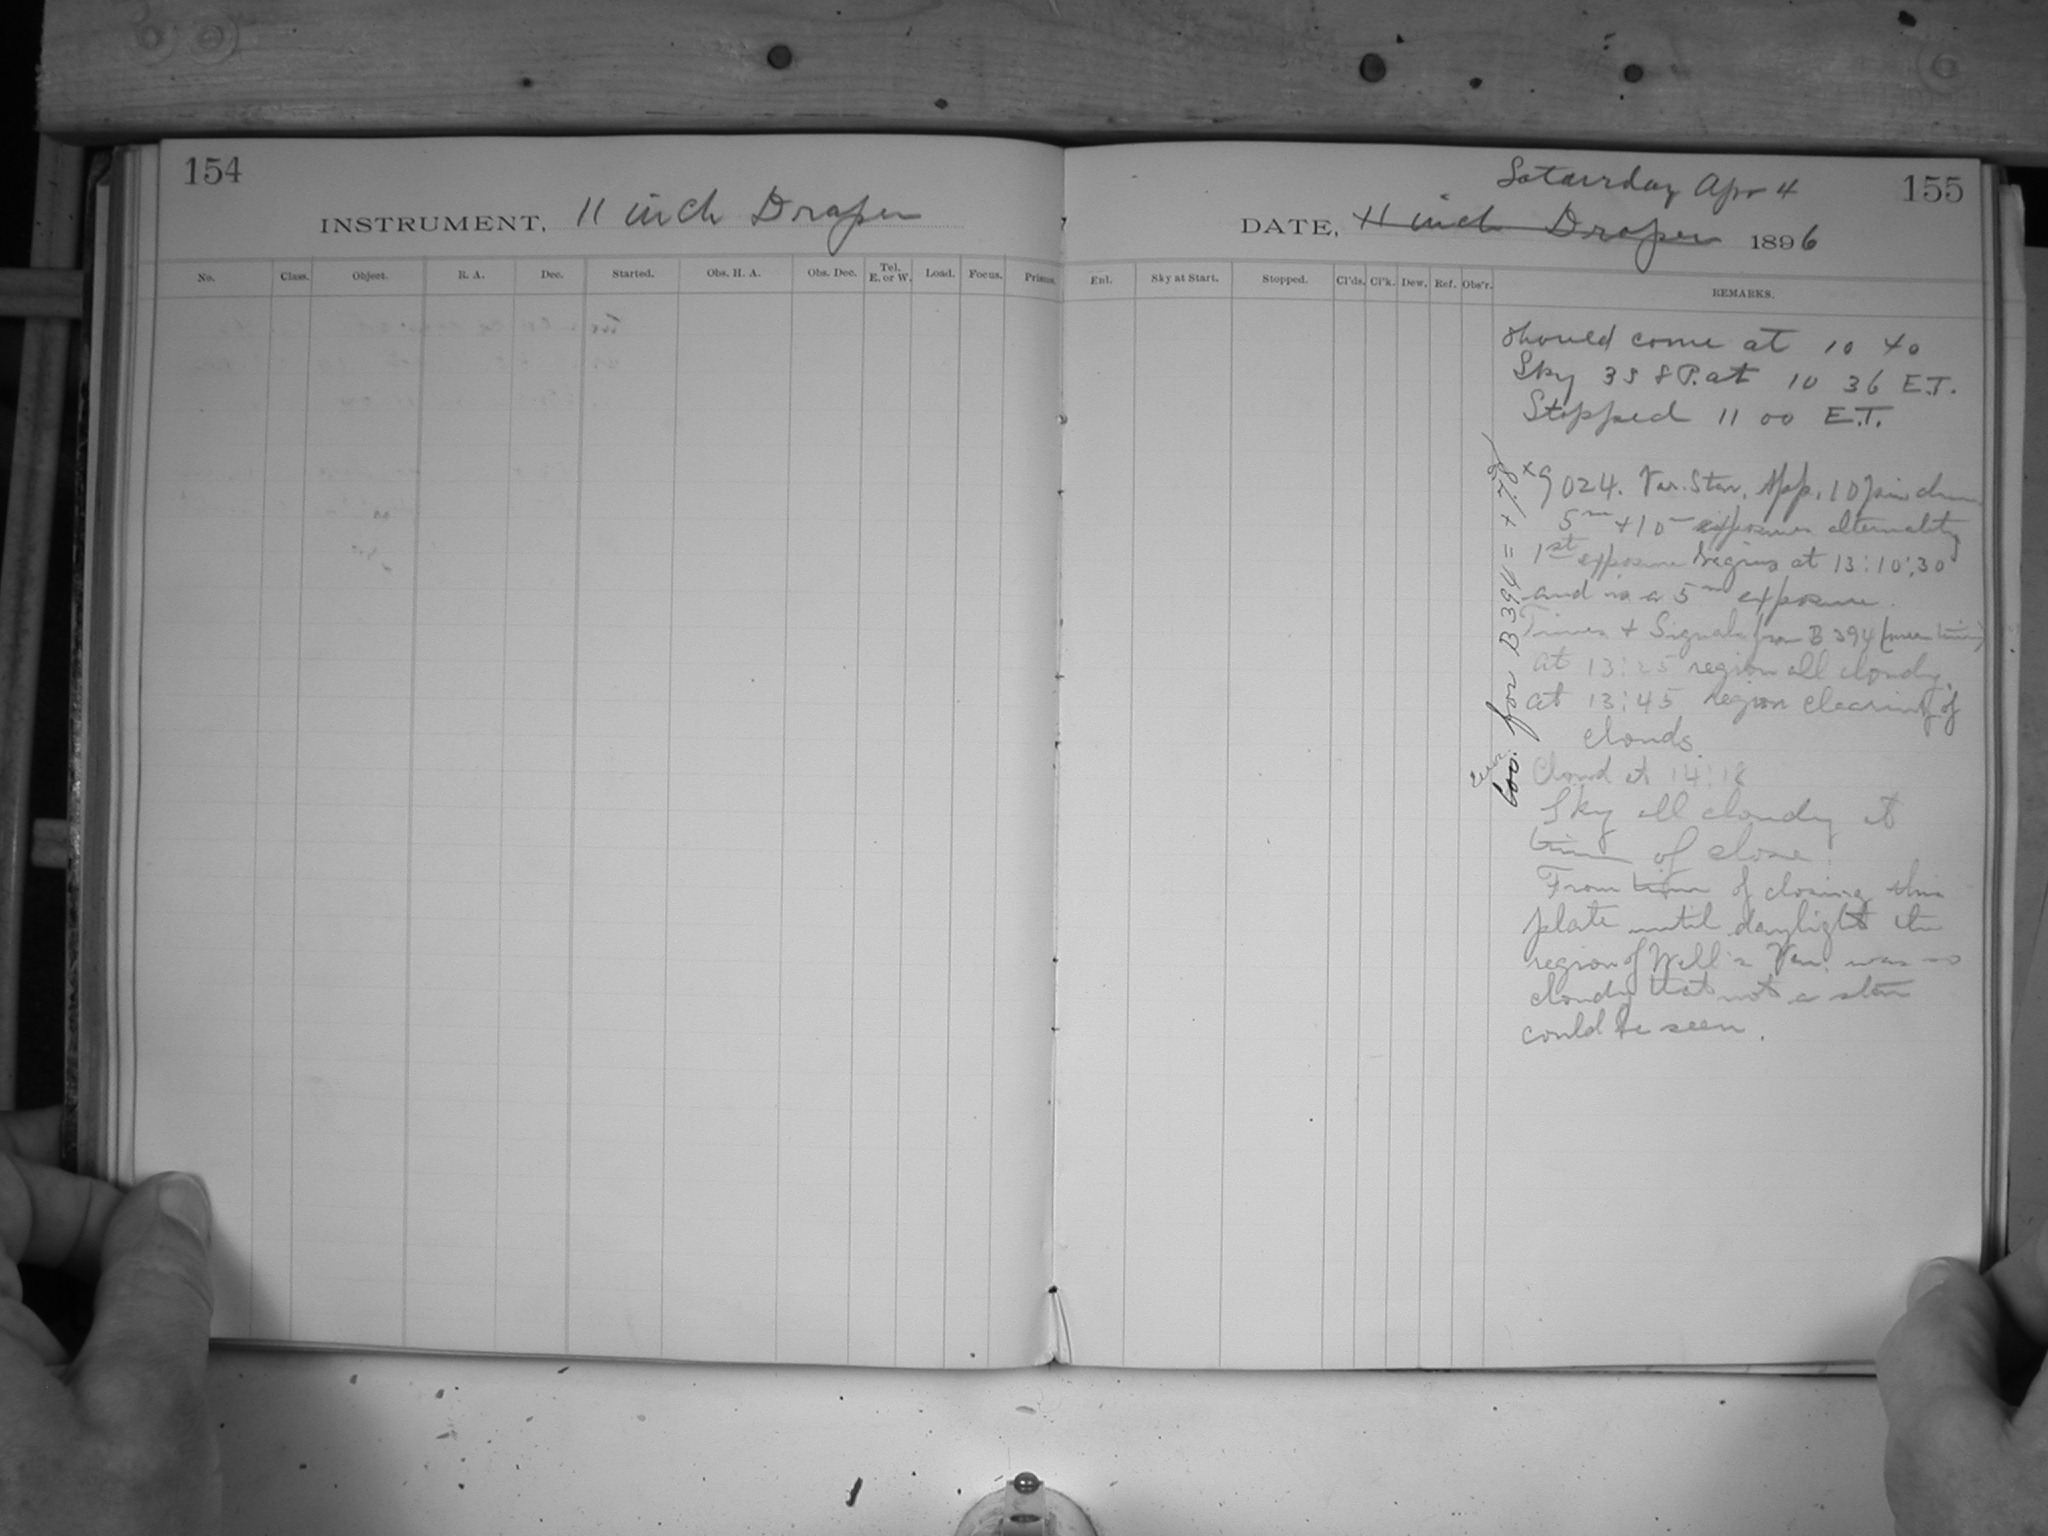 154
INSTRUMENT, 11 inch Draper
No. Class. Object. R. A. Dec. Started. Obs. H. A. Obs. Dec. Tel. E. or W. Load. Focus. Prisms.
155
Saturday Apr 4
DATE, 11 inch Draper 1896
Enl. Sky at Start. Stopped. Cl'ds. Cl'k. Dew. Ref. Obs'r. REMARKS.
should come at 10 40
Sky 3 S & P. at 10 36 E.T.
Stopped 11 00 E.T.
9024. Var. Star. App. 10
5m + 10m exposures alternately
1st exposure begins at 13:10:30
and is a 5m exposure.
Times + Signals from B 394 (mean time)
at 13:25 region all cloudy.
at 13:45 region clearing of
clouds.
Cloud at 14:18
Sky all cloudy at
time of close.
From time of closing this
plate until daylight the
region of Well's Var. was so
cloudy that not a star
could be seen.
for B 394 = + 1.78